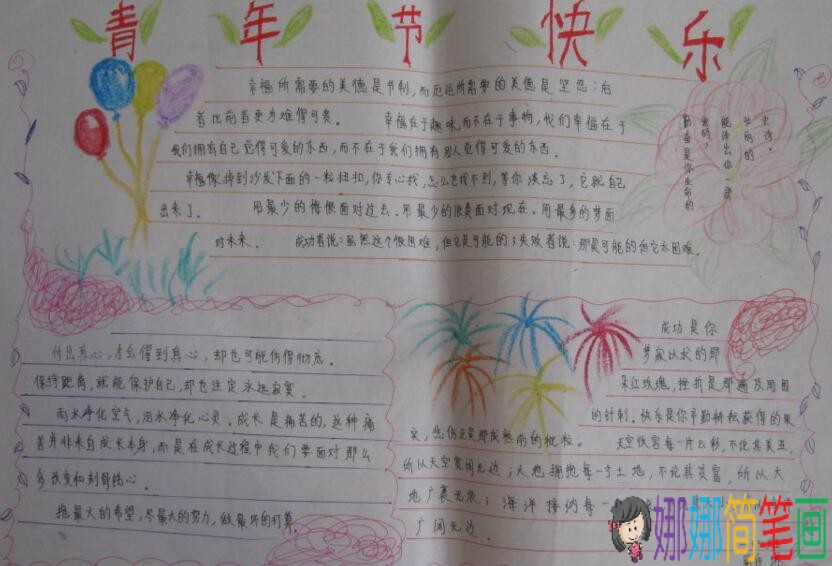 青年节快乐
幸福所需要的美德是节制,而厄运所需要的美德是坚忍;后
者比前者更为难得可贵。 幸福在于趣味,而不在于事物,我们幸福在于
我们拥有自己觉得可爱的东西,而不在于我们拥有别人觉得可爱的东西。
幸福像掉到沙发下面的一粒纽扣,你专心找,怎么也找不到,等你淡忘了,它就自己
出来了。 用最少的悔恨面对过去。用最少的浪费面对现在。用最多的梦面
对未来。 成功者说:虽然这个很困难,但它是可能的;失败者说:那是可能的但它太困难。
史诗。
壮丽的
能译出你一部
密码,
勤奋是你生命的
付出真心,才会得到真心,却也可能伤得彻底。
保持距离,就能保护自己,却也注定永远寂寞。
雨水净化空气,泪水净化心灵。成长是痛苦的,这种痛
苦并非来自成长本身,而是在成长过程中我们要面对那么
多改变和刻骨铭心。
抱最大的希望,尽最大的努力,做最坏的打算。
成功是你
梦寐以求的那
朵红玫瑰,挫折是那遍及周围
的针刺。快乐是你辛勤耕耘获得的果
实,悲伤正是那成熟前的秕粒。 天空收容每一片云彩,不论其美丑,
所以天空宽阔无边;大地拥抱每一寸土地,不论其贫富,所以大
地广袤无垠;海洋接纳每一
广阔无边。
娜娜简笔画